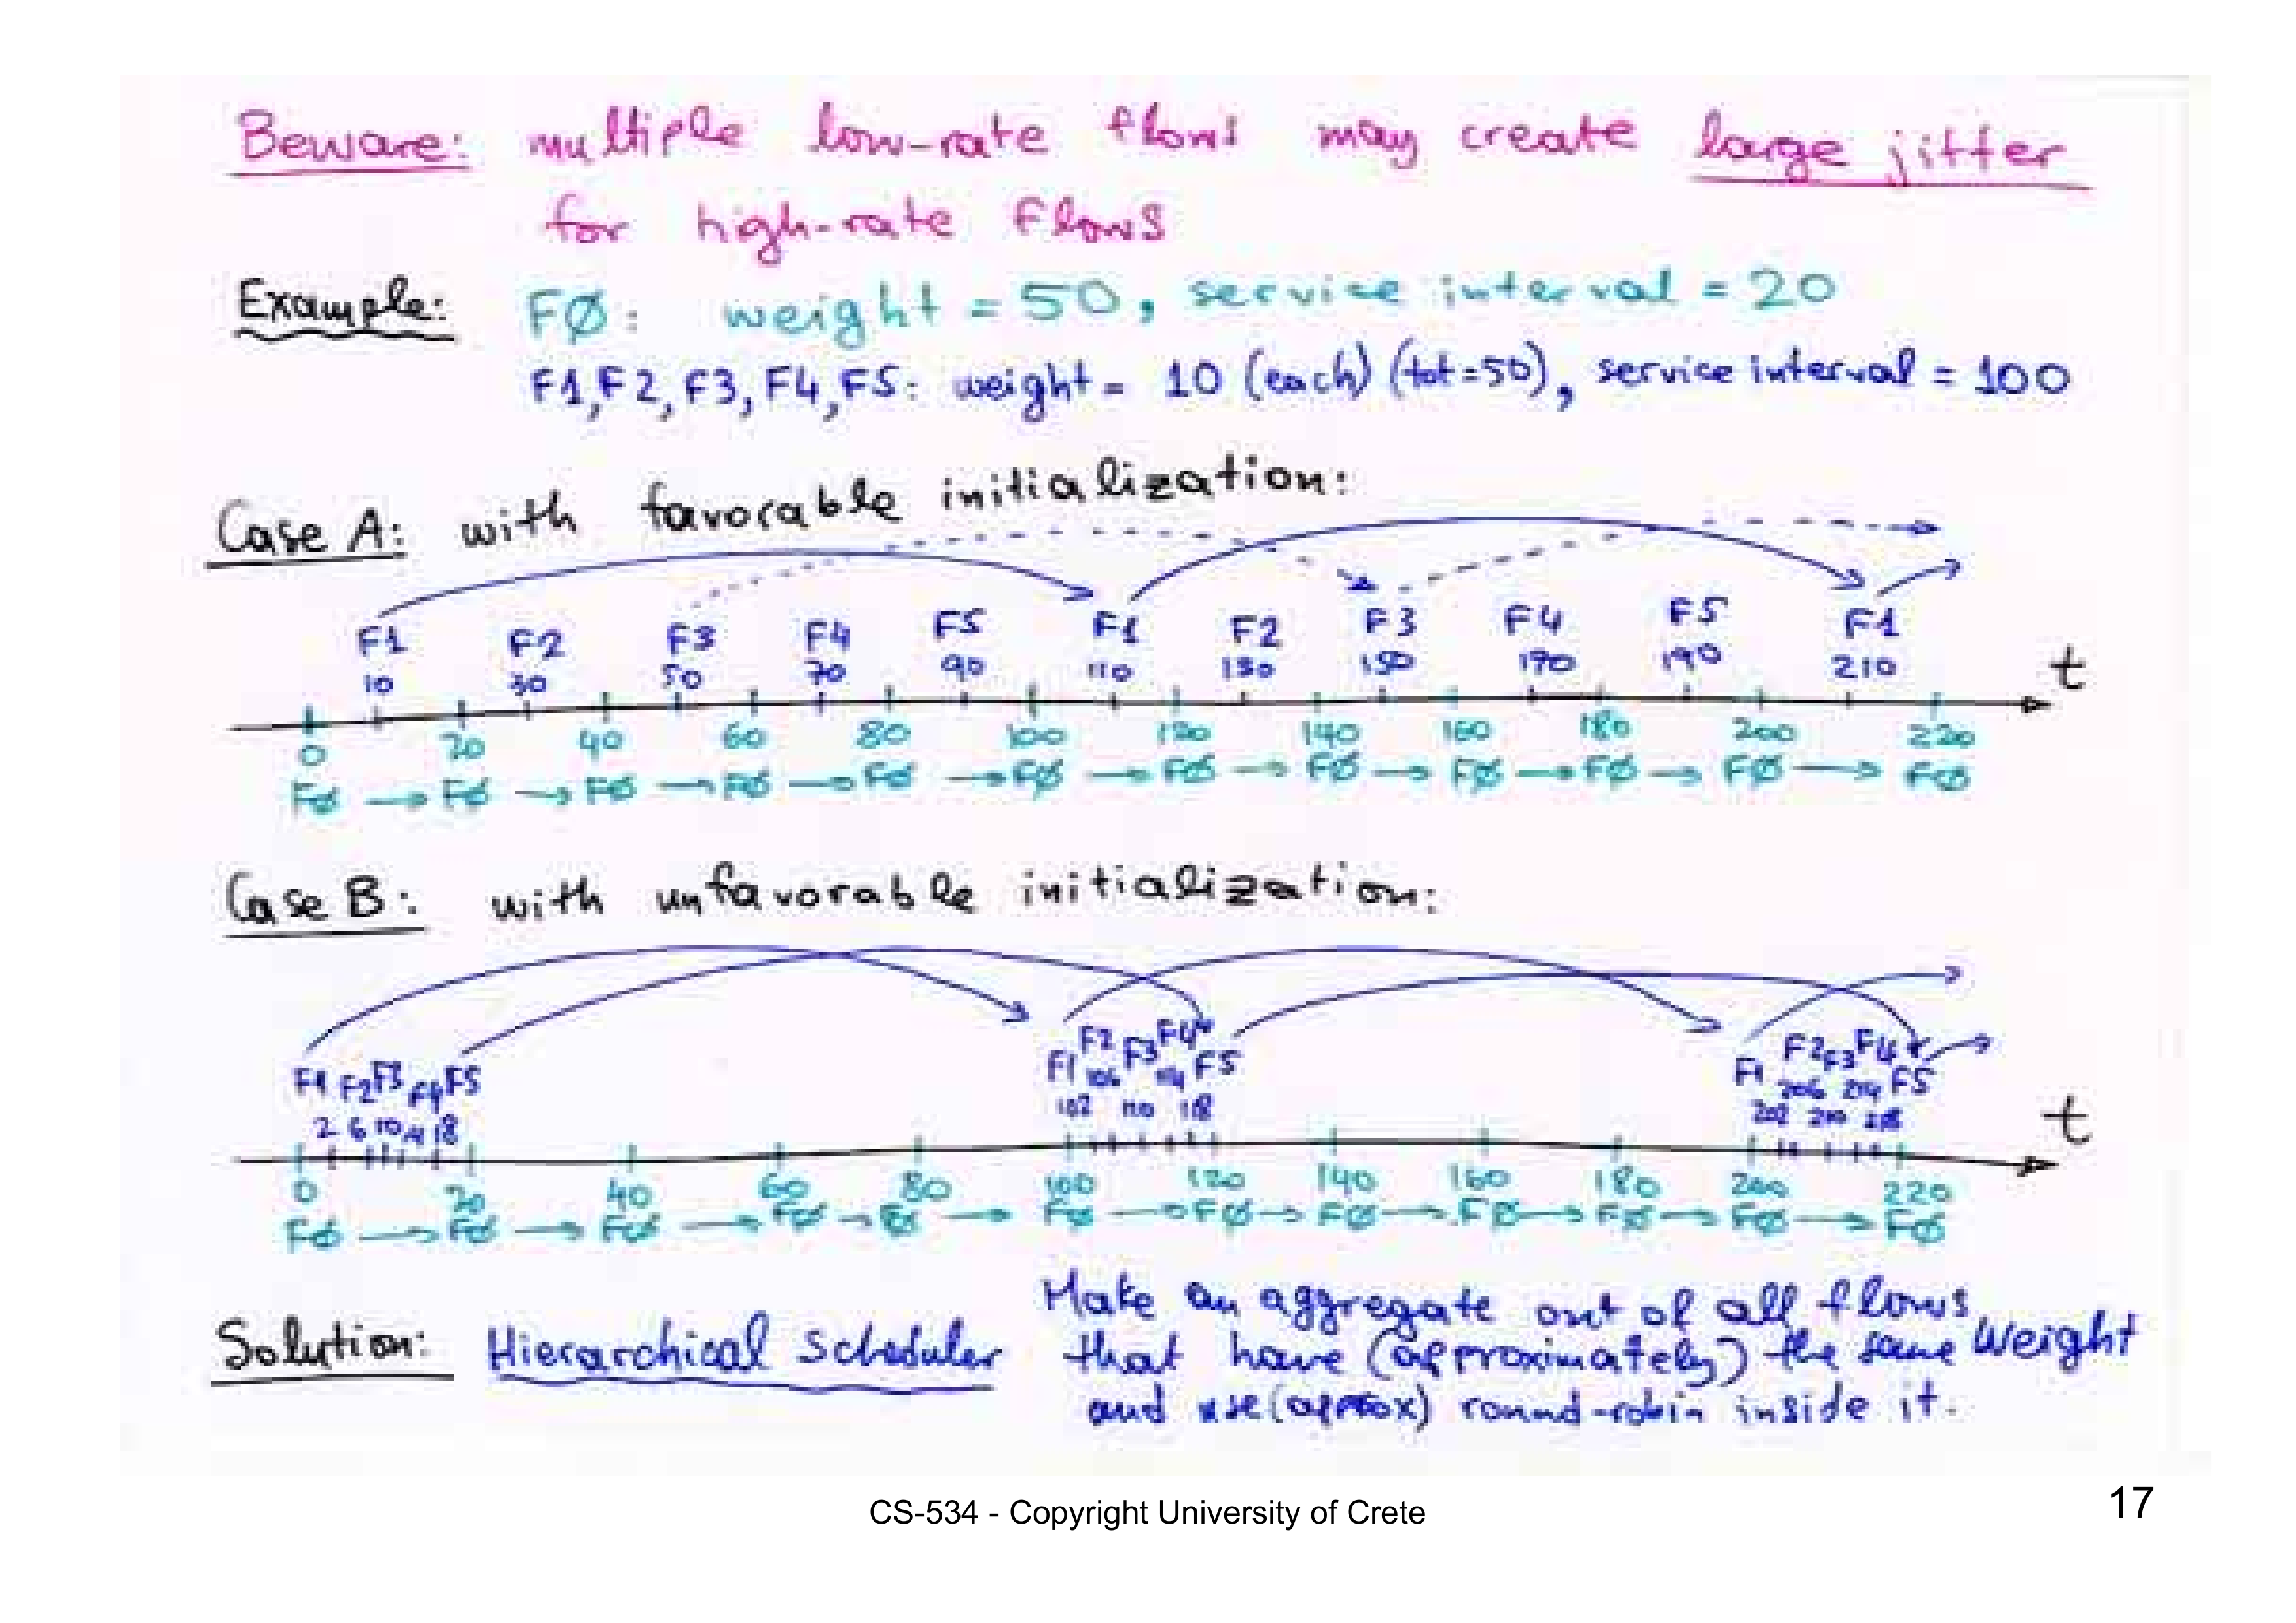 Beware: multiple low-rate flows may create large jitter
for high-rate flows
Example: FØ: weight = 50, service interval = 20
F1, F2, F3, F4, F5: weight = 10 (each) (tot=50), service interval = 100
Case A: with favorable initialization:
F1 F2 F3 F4 F5 F1 F2 F3 F4 F5 F1
10 30 50 70 90 110 130 150 170 190 210
t
0 20 40 60 80 100 120 140 160 180 200 220
FØ → FØ → FØ → FØ → FØ → FØ → FØ → FØ → FØ → FØ → FØ → FØ
Case B: with unfavorable initialization:
F1 F2 F3 F4 F5 F1 F2 F3 F4 F5 F1 F2 F3 F4 F5
2 6 10 14 18 102 106 110 114 118 202 206 210 214 218
t
0 20 40 60 80 100 120 140 160 180 200 220
FØ → FØ → FØ → FØ → FØ → FØ → FØ → FØ → FØ → FØ → FØ → FØ
Solution: Hierarchical Scheduler
Make an aggregate out of all flows
that have (approximately) the same weight
and use (approx) round-robin inside it.
CS-534 - Copyright University of Crete
17